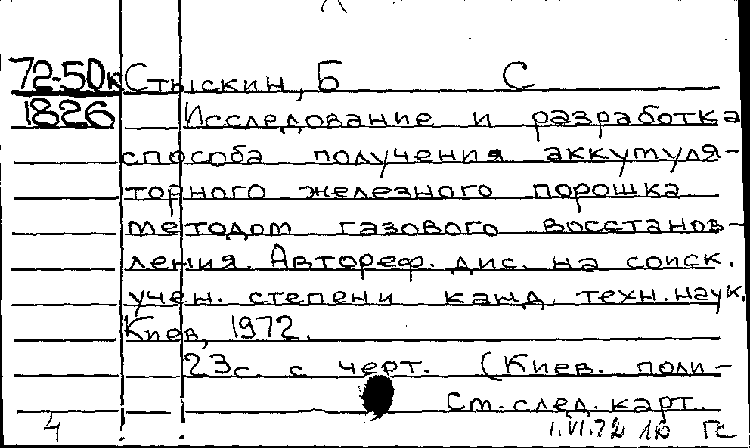 72-50к Стыскин, Б С
1826 Исследование и разработка
способа получения аккумуля-
торного железного порошка
методом газового восстанов-
ления. Автореф. дис. на соиск.
учен. степени канд. техн. наук.
Киев, 1972.
23с. с черт. (Киев. поли-
См. след. карт.
4 1.VI.72 1б ГС